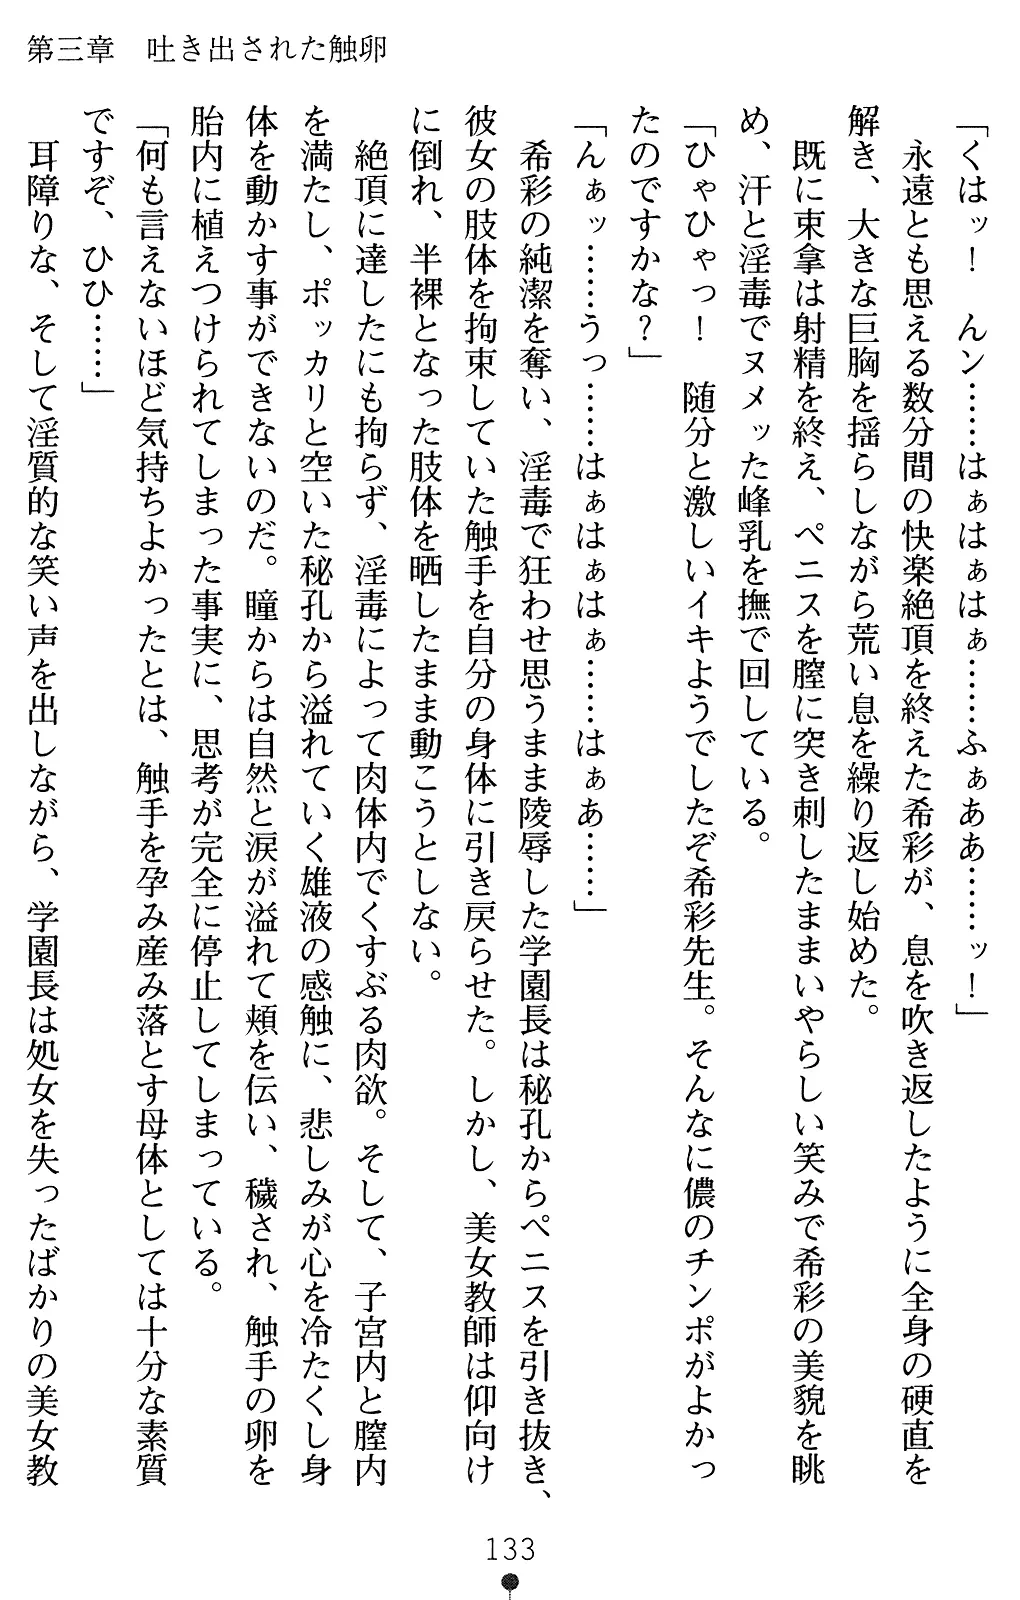 第三章　吐き出された触卵
「くはッ！　んン……はぁはぁはぁ……ふぁああ……ッ！」
　永遠とも思える数分間の快楽絶頂を終えた希彩が、息を吹き返したように全身の硬直を
解き、大きな巨胸を揺らしながら荒い息を繰り返し始めた。
　既に束拿は射精を終え、ペニスを膣に突き刺したままいやらしい笑みで希彩の美貌を眺
め、汗と淫毒でヌメッた峰乳を撫で回している。
「ひゃひゃっ！　随分と激しいイキようでしたぞ希彩先生。そんなに儂のチンポがよかっ
たのですかな？」
「んぁッ……うっ……はぁはぁはぁ……はぁあ……」
　希彩の純潔を奪い、淫毒で狂わせ思うまま陵辱した学園長は秘孔からペニスを引き抜き、
彼女の肢体を拘束していた触手を自分の身体に引き戻らせた。しかし、美女教師は仰向け
に倒れ、半裸となった肢体を晒したまま動こうとしない。
　絶頂に達したにも拘らず、淫毒によって肉体内でくすぶる肉欲。そして、子宮内と膣内
を満たし、ポッカリと空いた秘孔から溢れていく雄液の感触に、悲しみが心を冷たくし身
体を動かす事ができないのだ。瞳からは自然と涙が溢れて頬を伝い、穢され、触手の卵を
胎内に植えつけられてしまった事実に、思考が完全に停止してしまっている。
「何も言えないほど気持ちよかったとは、触手を孕み産み落とす母体としては十分な素質
ですぞ、ひひ……」
　耳障りな、そして淫質的な笑い声を出しながら、学園長は処女を失ったばかりの美女教
133